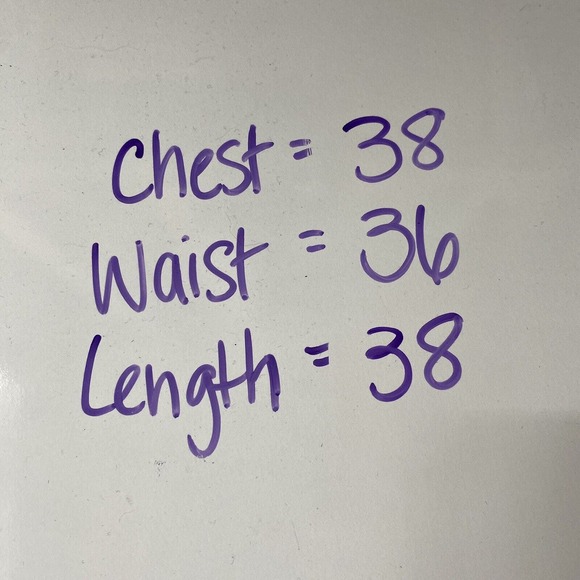 Chest = 38
Waist = 36
Length = 38